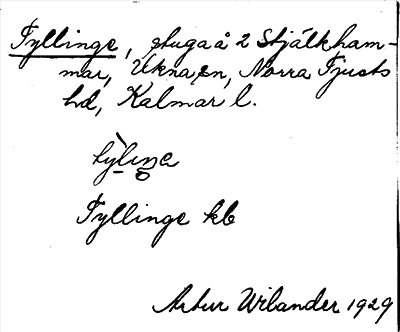 Tyllinge, stuga å 2 Stjälkham-
mar, Ukna sn, Norra Tjusts
hd, Kalmar l.
tỳliŋe
Tyllinge kb
Artur Wilander 1929